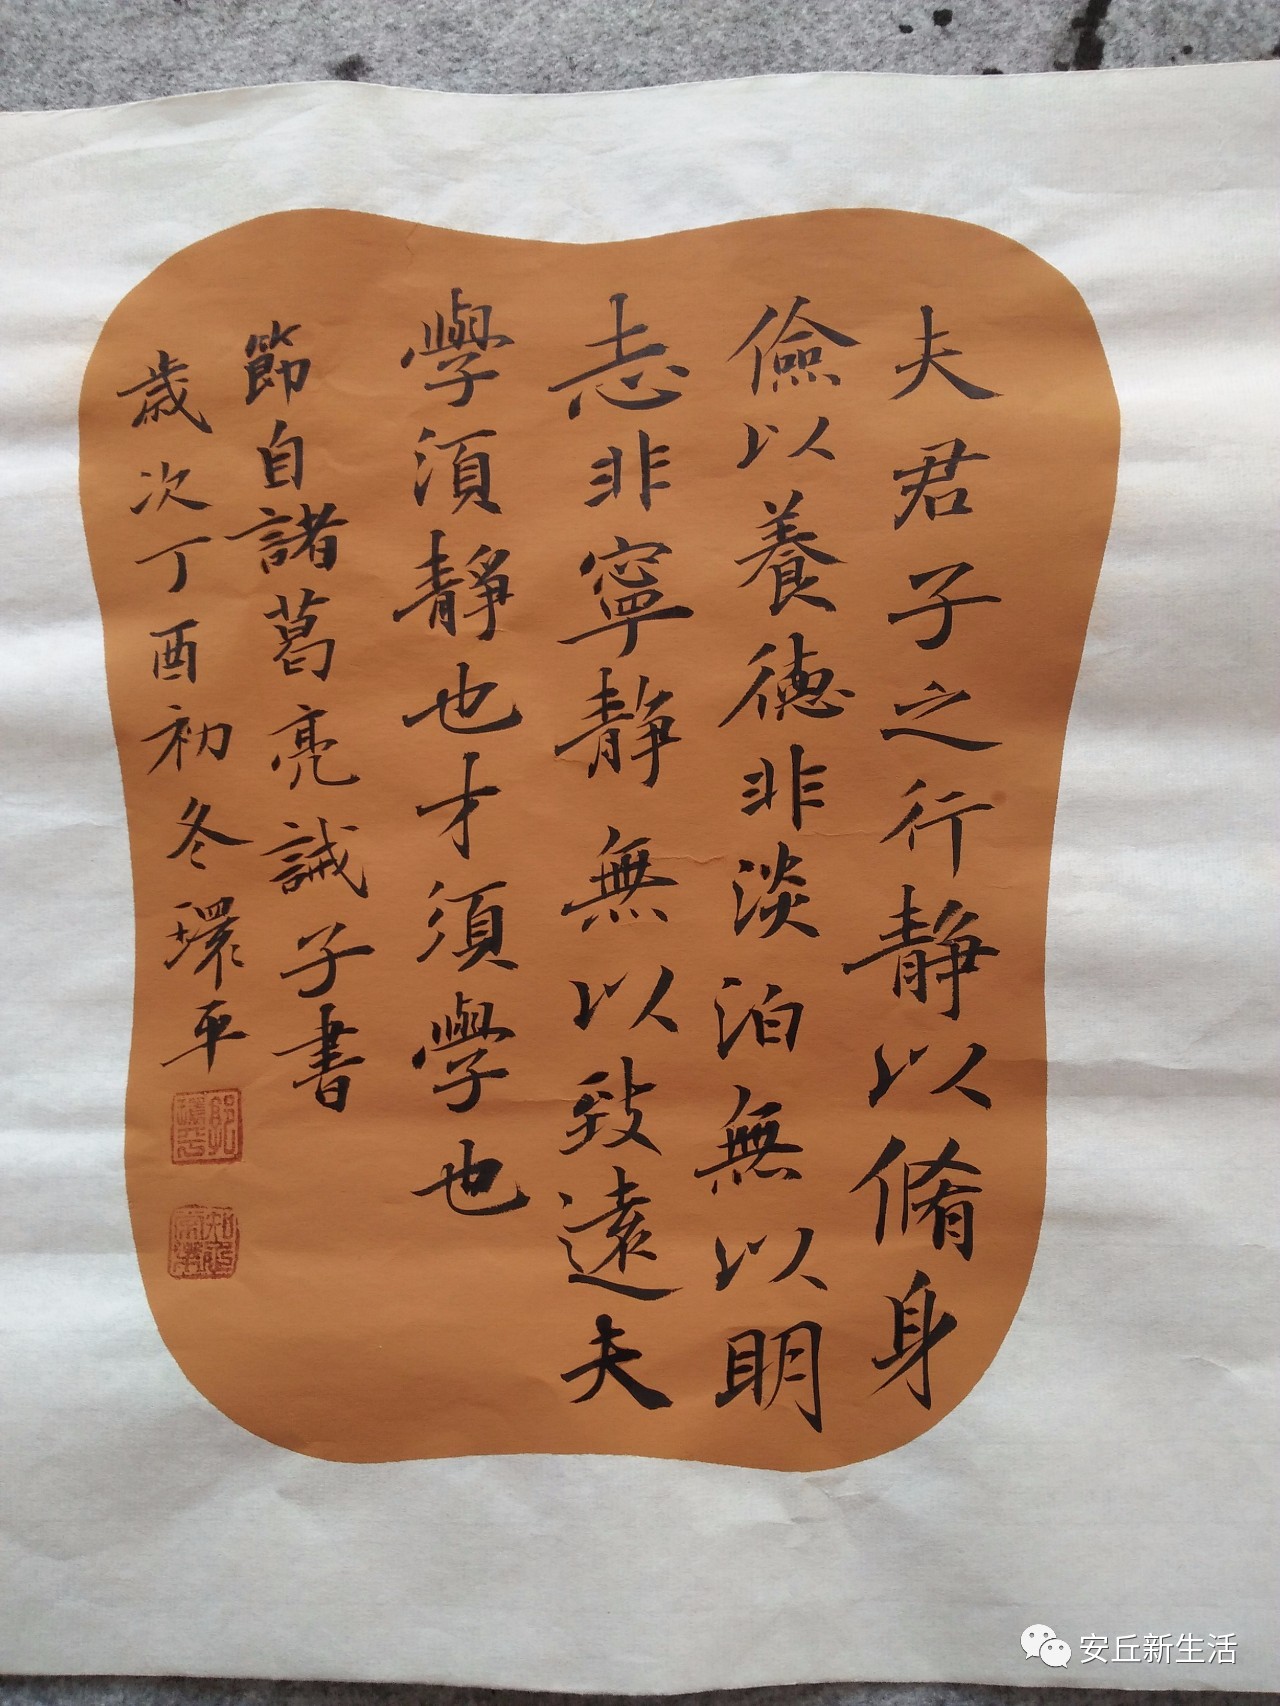 夫君子之行静以脩身
儉以養德非淡泊無以明
志非寧静無以致遠夫
學須静也才須學也
節自諸葛亮誡子書
歲次丁酉初冬環平
安丘新生活